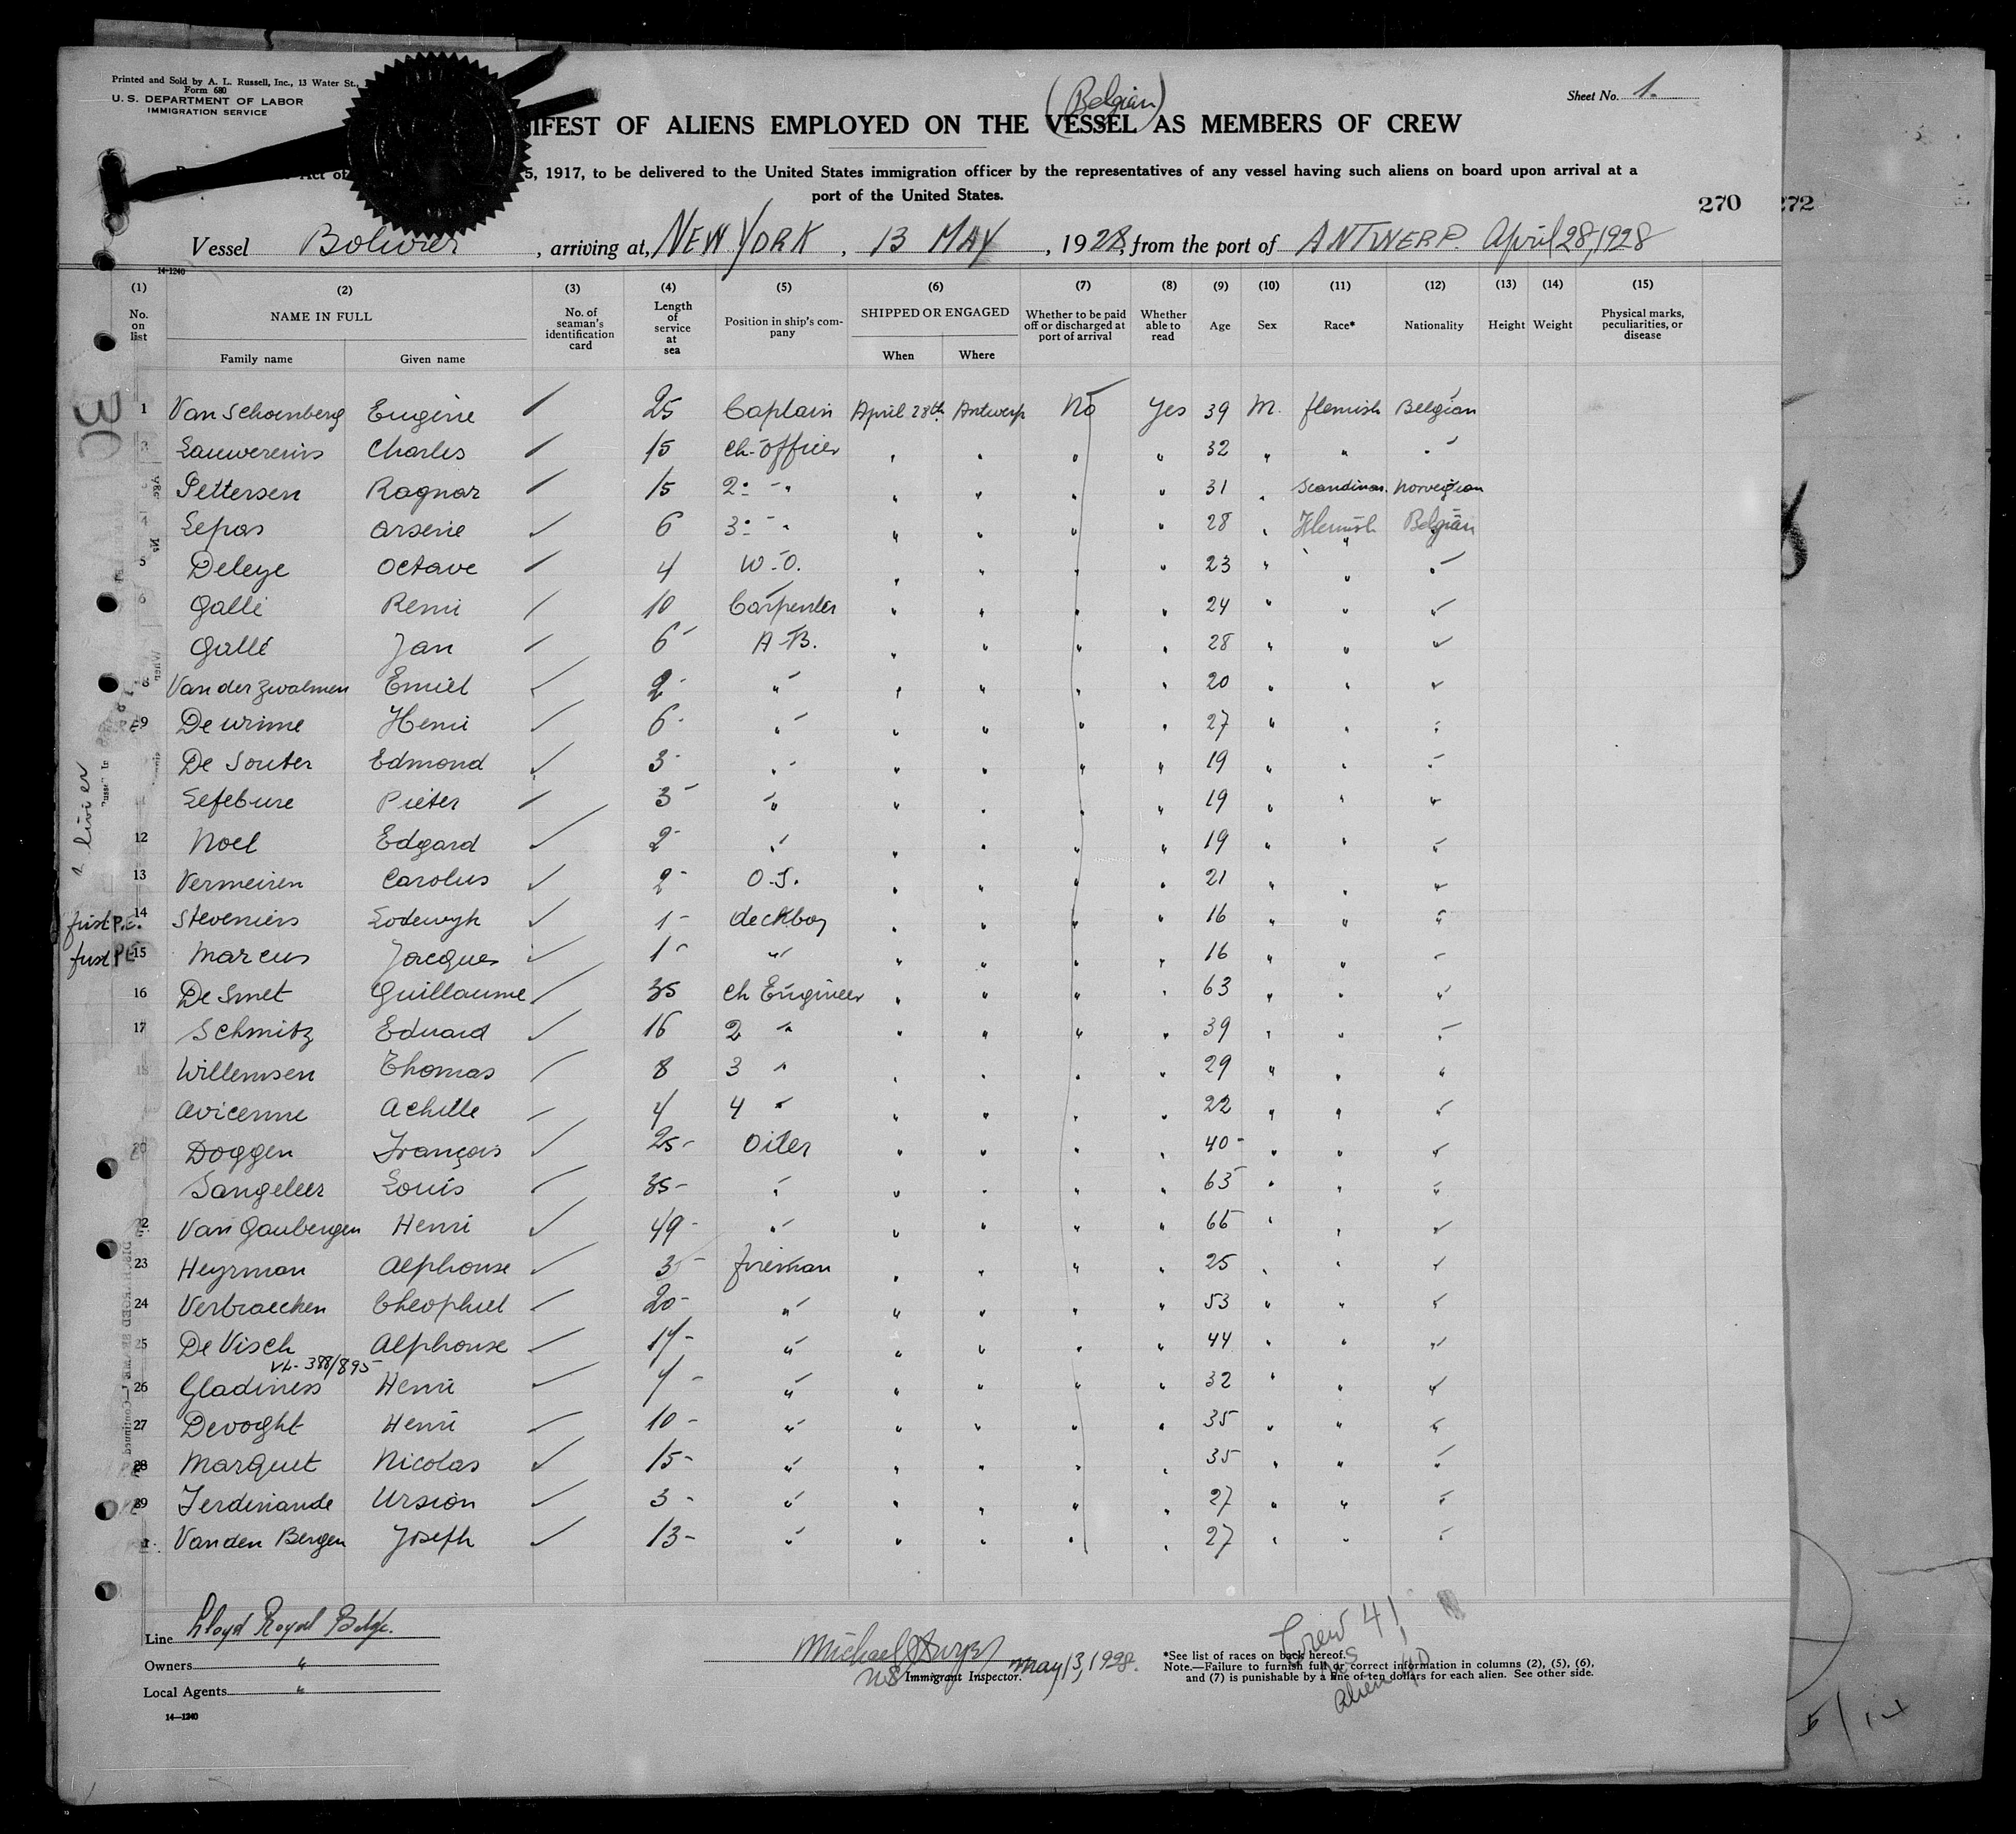 Printed and Sold by A. L. Russell, Inc., 13 Water St.,
Form 680
U. S. DEPARTMENT OF LABOR
IMMIGRATION SERVICE
(Belgian)
Sheet No. 1.
IFEST OF ALIENS EMPLOYED ON THE VESSEL AS MEMBERS OF CREW
Act of 5, 1917, to be delivered to the United States immigration officer by the representatives of any vessel having such aliens on board upon arrival at a
port of the United States.
270 272
Vessel , arriving at, NEW YORK , 13 MAY , 1928, from the port of ANTWERP. April 28, 1928
14-1240
(1) (2) (3) (4) (5) (6) (7) (8) (9) (10) (11) (12) (13) (14) (15)
No. on list NAME IN FULL Family name Given name No. of seaman's identification card Length of service at sea Position in ship's company SHIPPED OR ENGAGED When Where Whether to be paid off or discharged at port of arrival Whether able to read Age Sex Race* Nationality Height Weight Physical marks, peculiarities, or disease
1 Van Schoenberg Eugène 25 Captain April 28th Antwerp No Yes 39 M. flemish Belgian
3 Lauwereins Charles 15 ch-officer " " " " 32 " " "
Pettersen Ragnar 15 2° - " " " " " 31 " Scandinav. Norvegian
4 Lepas Arsene 6 3° - " " " " " 28 " Flemish Belgian
5 Deleye Octave 4 W-O. " " " " 23 " " "
6 Galle Remi 10 Carpenter " " " " 24 " " "
Gallé Jan 6 A-B. " " " " 28 " " "
8 Van der Zwalmen Emiel 2 " " " " " 20 " " "
9 De Henri 6 " " " " " 27 " " "
De Souter Edmond 3 " " " " " 19 " " "
Lefebure Pieter 3 " " " " " 19 " " "
12 Noel Edgard 2 " " " " " 19 " " "
13 Vermeiren Carolus 2 O.S. " " " " 21 " " "
first P.E. 14 Steveniers Lodewyk 1 deckboy " " " " 16 " " "
first P.E. 15 Marcus Jacques 1 " " " " " 16 " " "
16 De Smet Guillaume 35 ch Engineer " " " " 63 " " "
17 Schmitz Eduard 16 2 " " " " " 39 " " "
18 Willemsen Thomas 8 3 " " " " " 29 " " "
Avicenne Achille 4 4 " " " " " 22 " " "
20 Doggen François 25 Oiler " " " " 40 " " "
Sangeleer Louis 35 " " " " " 63 " " "
22 Van Gaubergen Henri 49 " " " " " 66 " " "
23 Heyrman Alphonse 3 fireman " " " " 25 " " "
24 Verbraecken Theophiel 20 " " " " " 53 " " "
25 De Visch Alphonse 17 " " " " " 44 " " "
VL- 388/895
26 Gladiness Henri 7 " " " " " 32 " " "
27 Devoght Henri 10 " " " " " 35 " " "
28 Marquet Nicolas 15 " " " " " 35 " " "
29 Ferdinande Ursion 3 " " " " " 27 " " "
Van den Bergen Joseph 13 " " " " " 27 " " "
Line Lloyd Royal Belge.
Owners "
Local Agents "
14-1240
Michael
US Immigrant Inspector. May 13, 1928.
Crew 41
US 1
Alien 40
*See list of races on back hereof.
Note.—Failure to furnish full or correct information in columns (2), (5), (6),
and (7) is punishable by a fine of ten dollars for each alien. See other side.